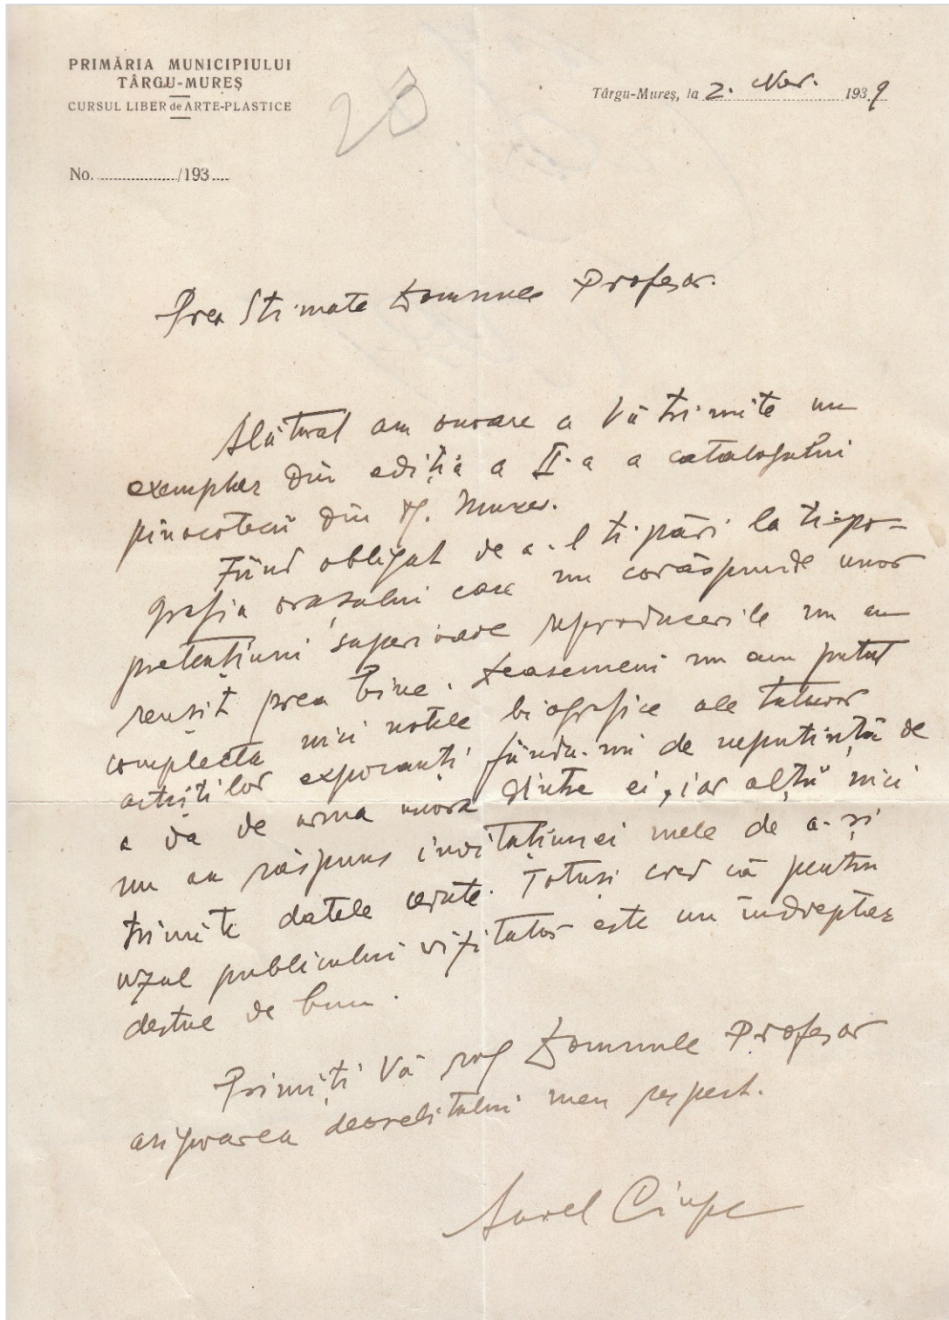 PRIMĂRIA MUNICIPIULUI
TÂRGU-MUREȘ
CURSUL LIBER de ARTE-PLASTICE
No. ................/193....
23
Târgu-Mureș, la 2. Nov. 1939
Prea Stimate Domnule Profesor.
Alăturat am onoare a Vă trimite un
exemplar din ediția a II-a a catalogului
pinacotecii din Tg. Mureș.
Fiind obligat de a-l tipări la tipo-
grafia orașului care nu corăspunde unor
pretențiuni superioare reproducerile nu au
reușit prea bine. Deasemeni nu am putut
complecta nici notele biografice ale tuturor
artiștilor expozanți fiindu-mi de neputință de
a da de urma unora dintre ei, iar alții nici
nu au răspuns invitațiunei mele de a-și
trimite datele cerute. Totuși cred că pentru
uzul publicului vizitator este un îndreptar
destul de bun.
Primiți Vă rog Domnule Profesor
asigurarea deosebitului meu respect.
Aurel Ciupe